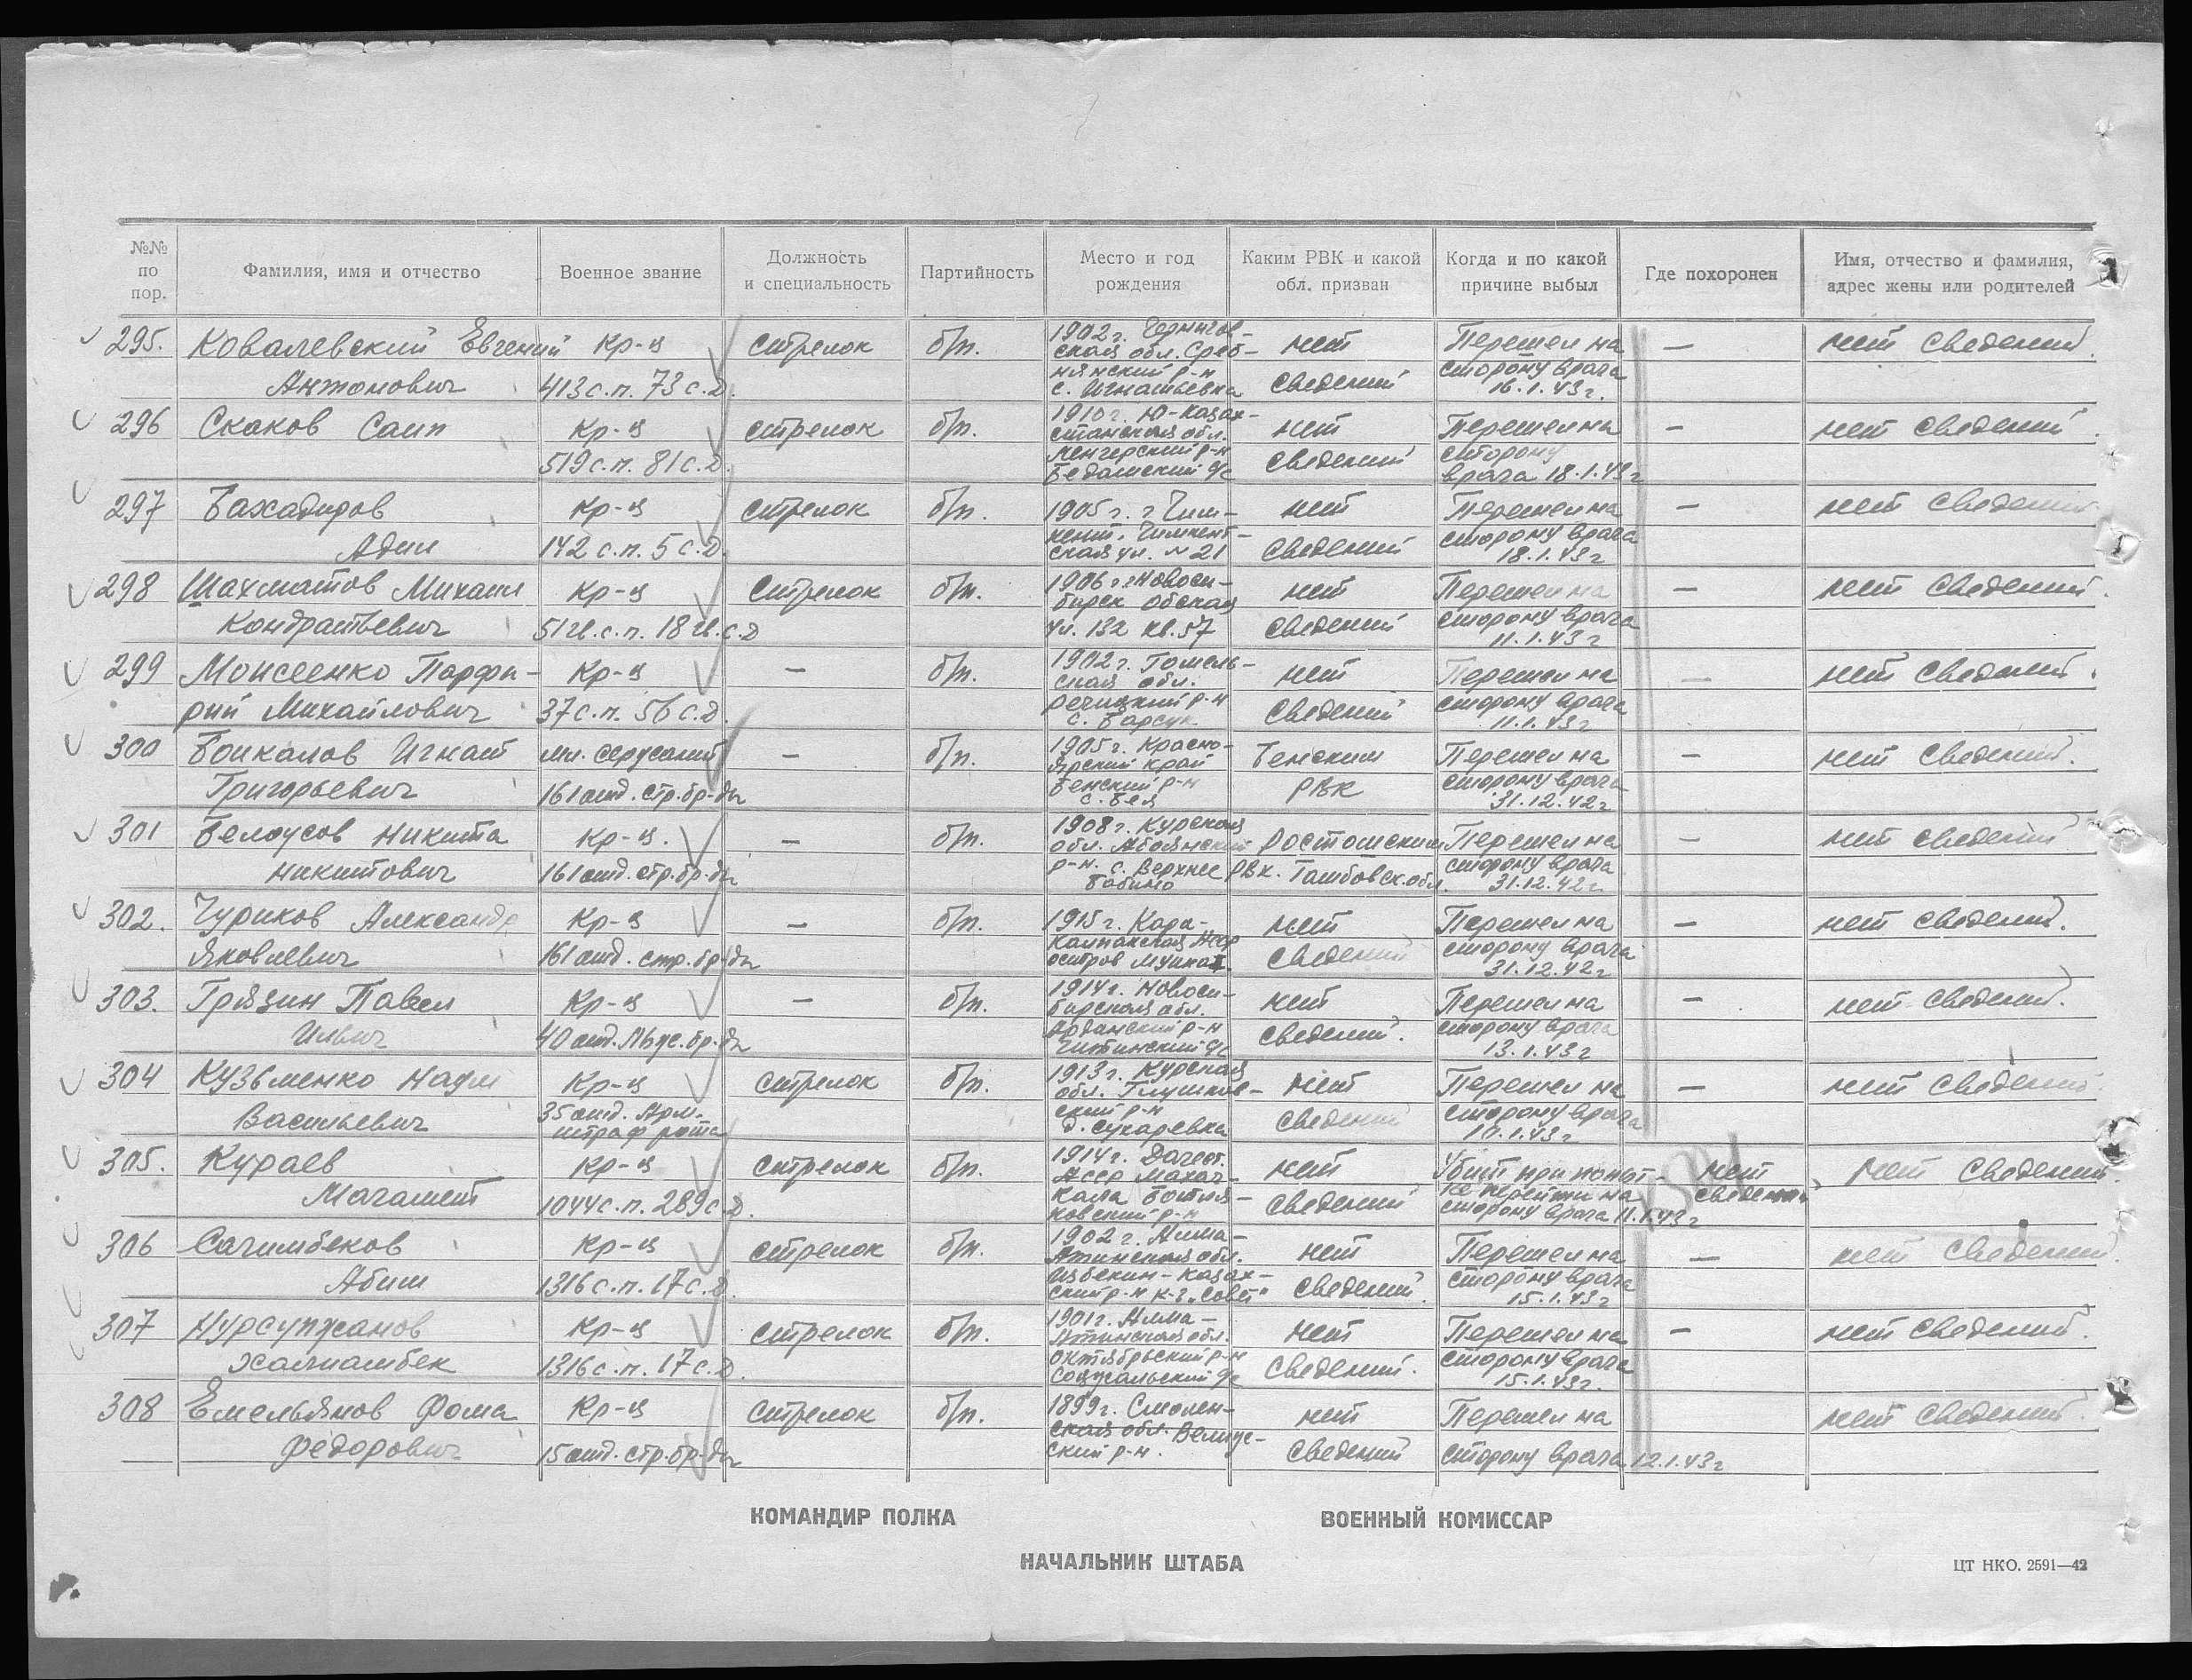 №№ по пор.
Фамилия, имя и отчество
Военное звание
Должность и специальность
Партийность
Место и год рождения
Каким РВК и какой обл. призван
Когда и по какой причине выбыл
Где похоронен
Имя, отчество и фамилия, адрес жены или родителей
295. Ковалевский Евгений Кр-ц стрелок б/п. 1902 г. Чернигов- нет Перешел на — нет сведений.
ская обл. Среб-
Антонович 413 с.п. 73 с.д. нянский р-н сведений сторону врага
с. Игнатьевка 16.1.43 г.
296 Скаков Саип Кр-ц стрелок б/п. 1910 г. Ю-Казах- нет Перешел на — нет сведений.
станская обл.
519 с.п. 81 с.д. Ленгерский р-н сведений сторону
с/с врага 18.1.43 г
297 Бахадиров Кр-ц стрелок б/п. 1905 г. г Чим- нет Перешел на — нет сведений
Адил 142 с.п. 5 с.д. кент. Чимкент- сведений сторону врага
ская ул. № 21 18.1.43 г
298 Шахматов Михаил Кр-ц стрелок б/п. 1906 г. г Новоси- нет Перешел на — нет сведений.
бирск Обская
Кондратьевич 51 гв.с.п. 18 гв.с.д ул. 132 кв. 57 сведений сторону врага
11.1.43 г
299 Моисеенко Парфи- Кр-ц — б/п. 1902 г. Гомель- нет Перешел на — нет сведений.
ская обл.
рий Михайлович 37 с.п. 56 с.д. Речицкий р-н сведений сторону врага
с. Барсук 11.1.43 г
300 Боикалов Игнат мл. сержант — б/п. 1905 г. Красно- Бейским Перешел на — нет сведений.
ярский край
Григорьевич 161 отд. стр. бр-ды Бейский р-н РВК сторону врага
с. Бея 31.12.42 г
301 Белоусов Никита Кр-ц. — б/п. 1908 г. Курская Ростошским Перешел на — нет сведений
обл. Абоянский
Никитович 161 отд. стр. бр-ды р-н. с. Верхнее РВК. Тамбовск. обл. сторону врага
Бабино 31.12.42 г
302. Чуриков Александр Кр-ц — б/п. 1915 г. Кара- нет Перешел на — нет сведений.
Яковлевич 161 отд. стр. бр-ды калпакская сведений сторону врага
остров 31.12.42 г
303. Грязин Павел Кр-ц — б/п. 1914 г. Новоси- нет Перешел на — нет сведений.
бирская обл.
Ильич 40 отд. лыж. бр-ды р-н сведений. сторону врага
с/с 13.1.43 г
304 Кузьменко Наум Кр-ц стрелок б/п. 1913 г. Курская нет Перешел на — нет сведений
обл. Глушков-
Васильевич 35 отд. Арм. ский р-н сведений сторону врага
штраф рота д. Сухаревка 10.1.43 г
305. Кураев Кр-ц стрелок б/п. 1914 г. Дагест. нет Убит при попыт- нет нет сведений.
Асср Махач-
Магамет 1044 с.п. 289 с.д. кала сведений ке перейти на сведений
ковский р-н сторону врага 11.1.43 г
306 Сагимбеков Кр-ц стрелок б/п. 1902 г. Алма- нет Перешел на — нет сведений.
Атинская обл.
Абиш 1316 с.п. 17 с.д. Казах- сведений. сторону врага
ский р-н к-з „Совет" 15.1.43 г
307 Нурсупжанов Кр-ц стрелок б/п. 1901 г. Алма- нет Перешел на — нет сведений.
Атинская обл.
Халиамбек 1316 с.п. 17 с.д. Октябрьский р-н сведений. сторону врага
с/с 15.1.43 г.
308 Емельянов Фома Кр-ц стрелок б/п. 1899 г. Смолен- нет Перешел на нет сведений.
ская обл. Велиж-
Федорович 15 отд. стр. бр-ды ский р-н. сведений сторону врага 12.1.43 г
КОМАНДИР ПОЛКА
ВОЕННЫЙ КОМИССАР
НАЧАЛЬНИК ШТАБА
ЦТ НКО. 2591—42